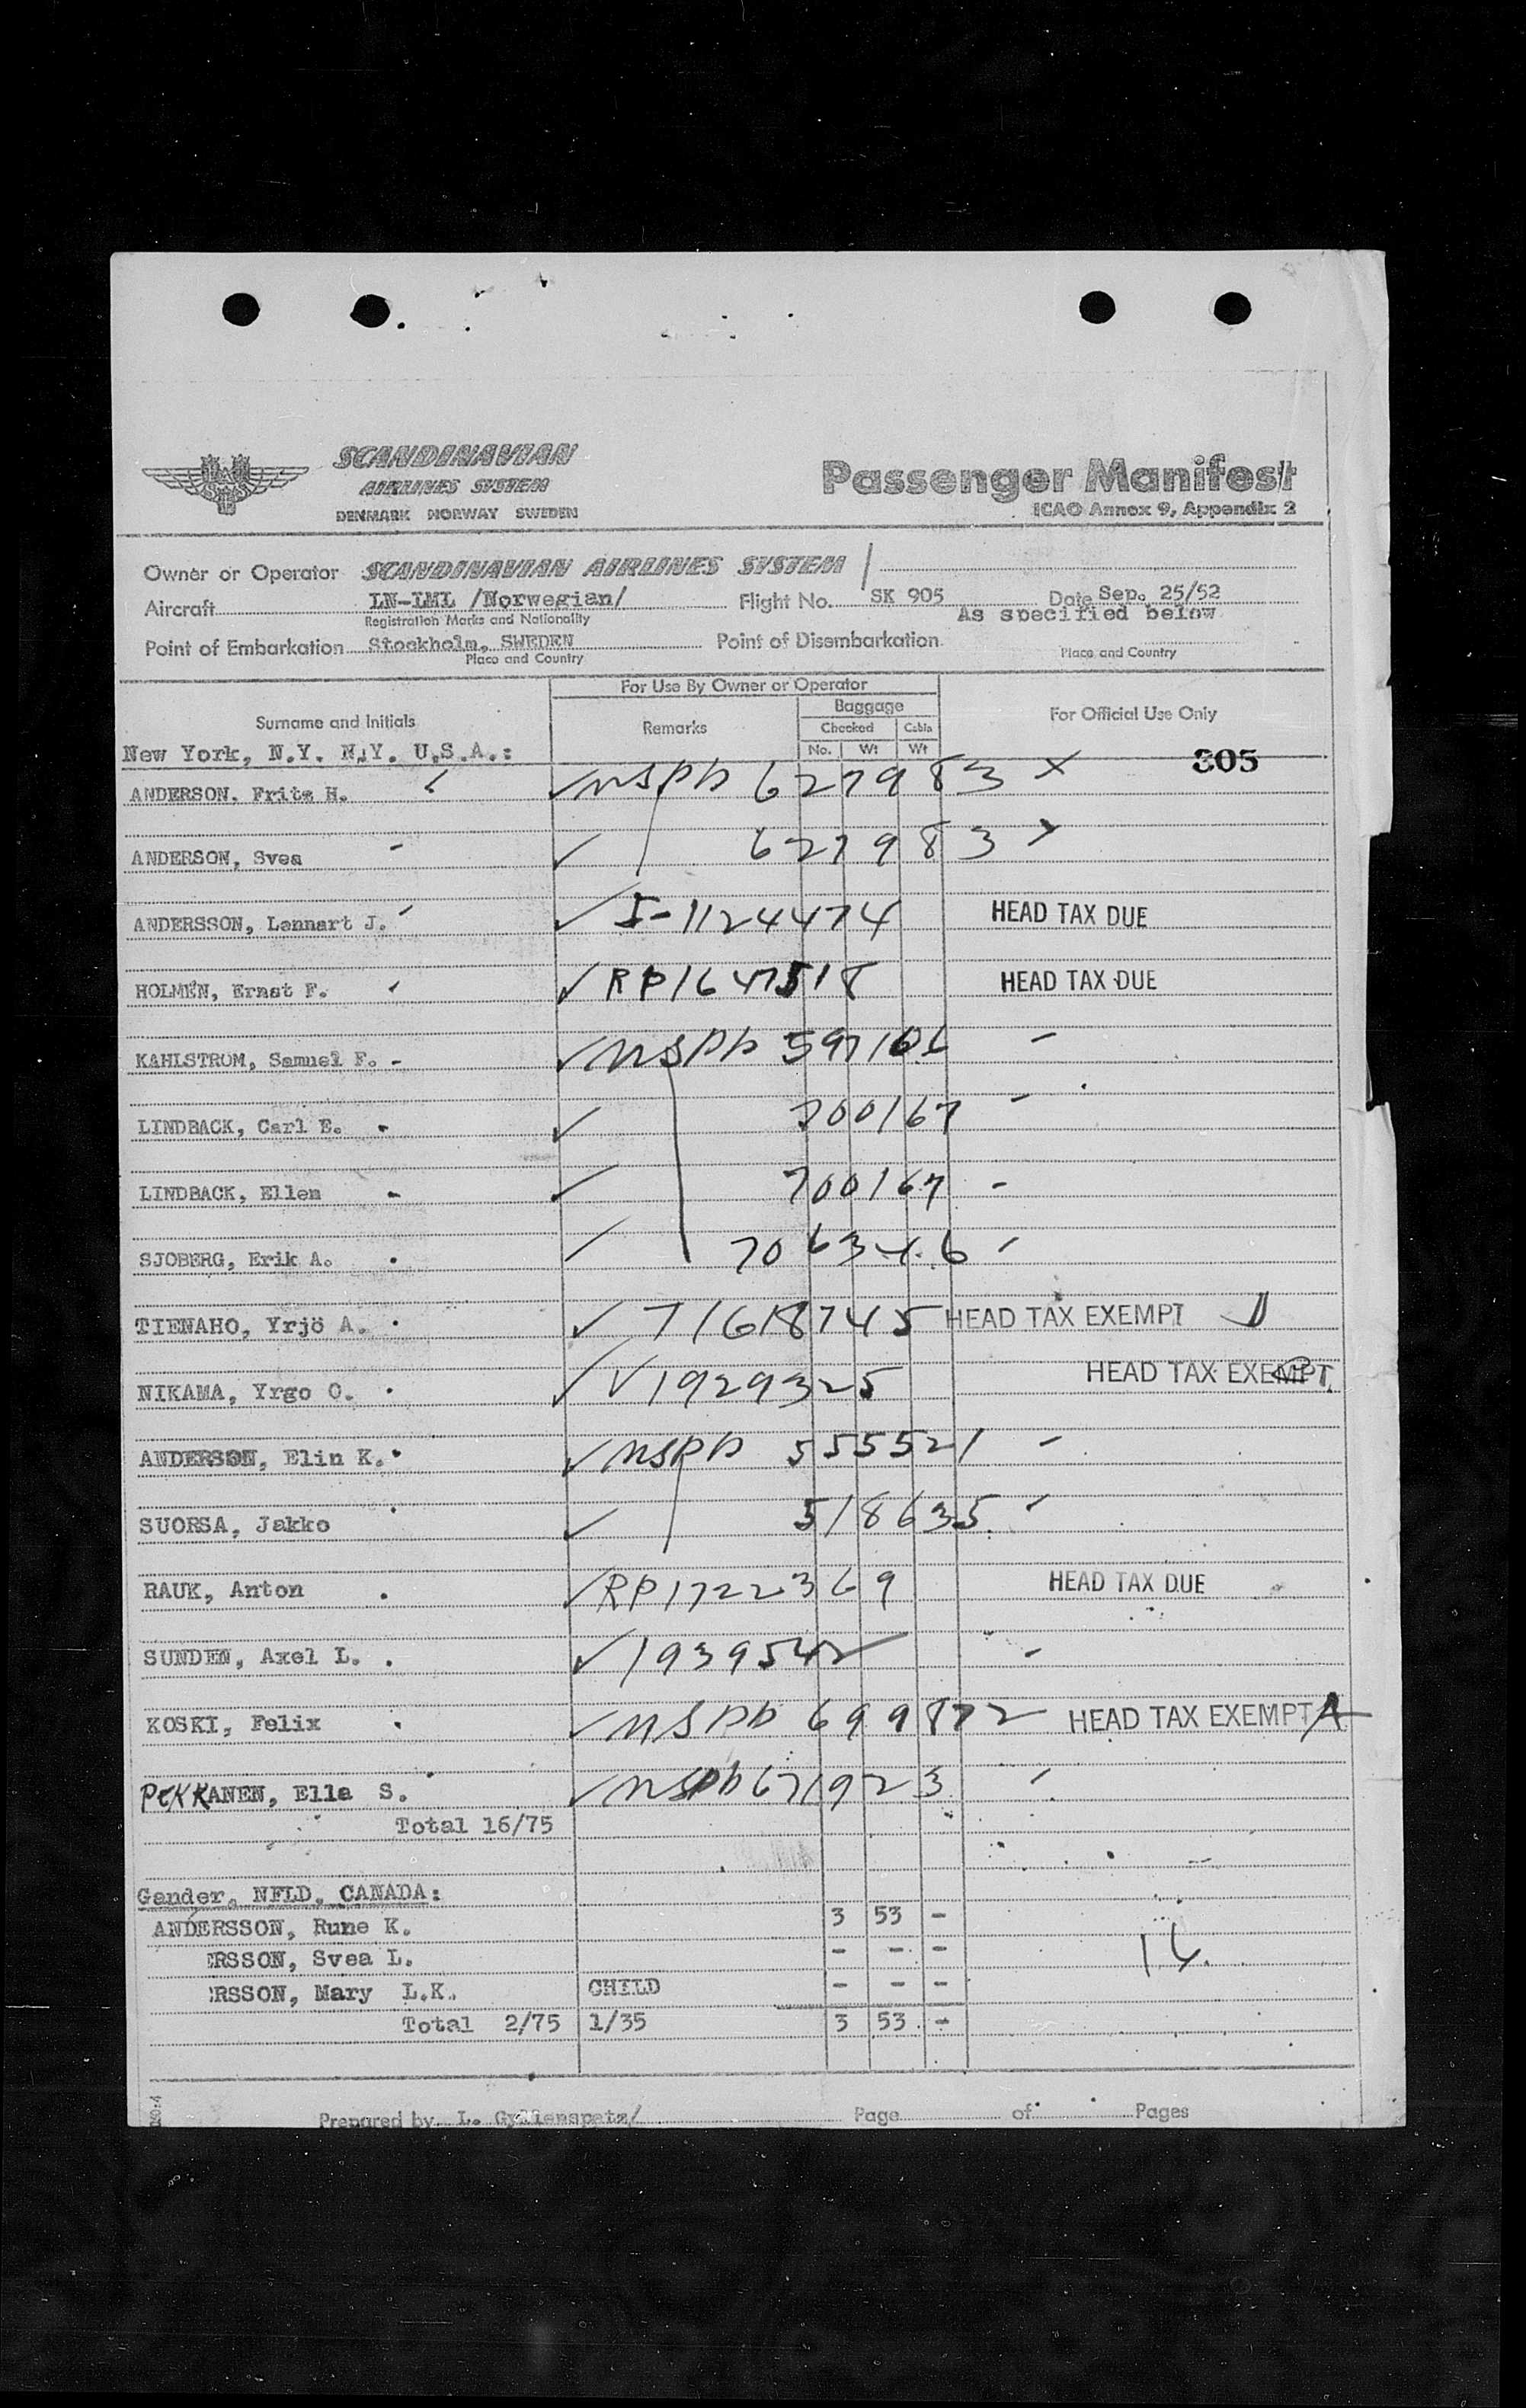 SCANDINAVIAN
AIRLINES SYSTEM
DENMARK NORWAY SWEDEN
Passenger Manifest
ICAO Annex 9, Appendix 2
Owner or Operator SCANDINAVIAN AIRLINES SYSTEM
Aircraft LN-LML /Norwegian/ Flight No. SK 905 Date Sep. 25/52
Registration Marks and Nationality As specified below
Point of Embarkation Stockholm, SWEDEN Point of Disembarkation
Place and Country Place and Country
For Use By Owner or Operator
Baggage
Surname and Initials Remarks Checked Cabin For Official Use Only
No. Wt Wt
New York, N.Y. N.Y. U.S.A.: 305
ANDERSON. Fritz H. ✓ USPP 627983 X
ANDERSON, Svea ✓ 627983
ANDERSSON, Lennart J. ✓ I-1124474 HEAD TAX DUE
HOLMÉN, Ernst F. ✓ RP1647518 HEAD TAX DUE
KAHLSTROM, Samuel F. - ✓ USPP 597106 -
LINDBACK, Carl E. ✓ 700167 -
LINDBACK, Ellen - ✓ 700167 -
SJOBERG, Erik A. 706346
TIENAHO, Yrjö A. ✓ T1618745 HEAD TAX EXEMPT
NIKAMA, Yrgo O. ✓ V1929325 HEAD TAX EXEMPT
ANDERSON, Elin K. ✓ USPP 555521 -
SUORSA, Jakko ✓ 518635
RAUK, Anton ✓ RP1722369 HEAD TAX DUE
SUNDEN, Axel L. ✓ 1939542 -
KOSKI, Felix ✓ USPP 699872 HEAD TAX EXEMPT A
PEKKANEN, Ella S. ✓ USPP 671923
Total 16/75
Gander, NFLD, CANADA:
ANDERSSON, Rune K. 3 53 -
ERSSON, Svea L. - - - 16.
RSSON, Mary L.K. CHILD - - -
Total 2/75 1/35 3 53 -
Prepared by L. Gyllenspetz/ Page of Pages